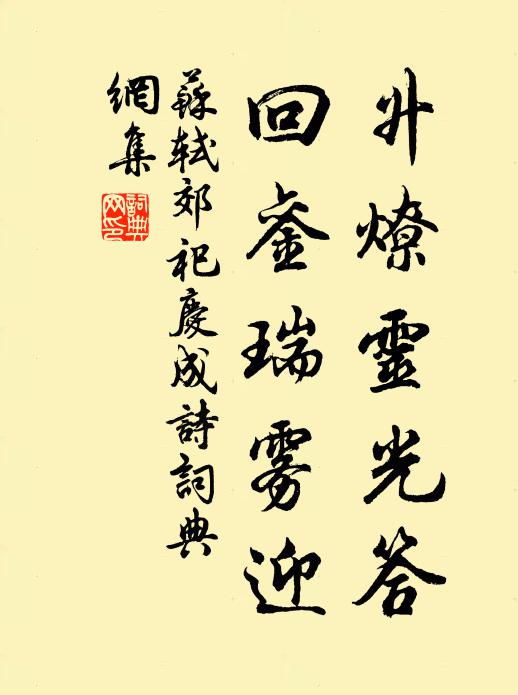 升燎靈光答
回銮瑞雾迎
蘇軾郊祀慶成詩詞典
網集
詞典
网印